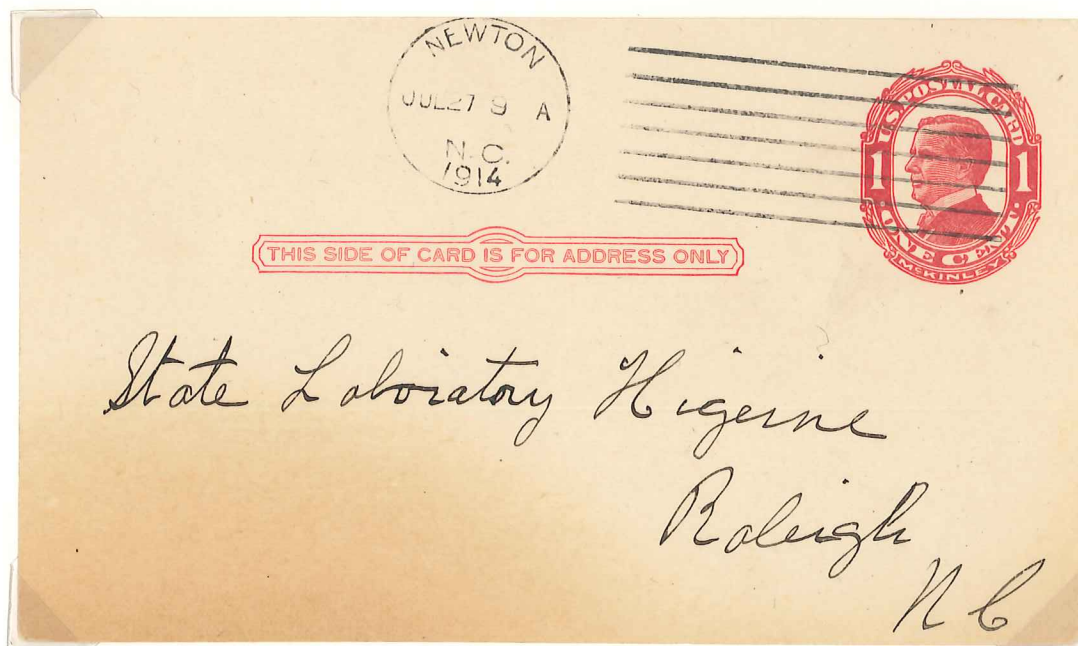 NEWTON
JUL 27 9 A
N.C.
1914
U.S. POSTAL CARD
1 1
ONE CENT
McKINLEY
THIS SIDE OF CARD IS FOR ADDRESS ONLY
State Laboiatory Higeine
Raleigh
N C